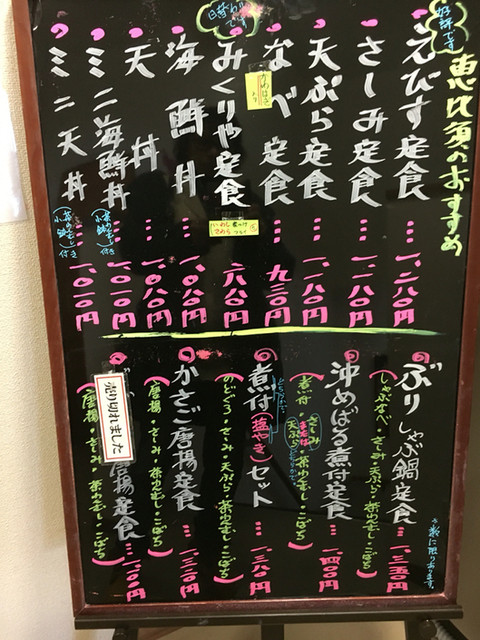 恵比須のおすすめ
好評です
えびす定食…一、二八〇円
さしみ定食…一、一八〇円
天ぷら定食…一、一八〇円
なべ定食…九三〇円
日替わりです
みくりや定食
八八〇円
海鮮丼…一、〇八〇円
天丼…一、〇八〇円
ミニ海鮮丼…一、〇一〇円
(茶わんむし・小鉢)付き
ミニ天丼…一、〇一〇円
(茶わんむし・小鉢)付き
ぶりしゃぶ鍋定食…一、三五〇円
(しゃぶなべ・さしみ・天ぷら・茶わんむし・こばち)
数に限りあります。
沖めばる煮付定食…一、四〇〇円
(煮付・さしみまたは天ぷらどちらかで・茶わんむし・こばち)
煮付(塩やき)セット…一、三八〇円
(のどぐろ・さしみ・天ぷら・茶わんむし・こばち)
かさご唐揚定食…一、二三〇円
(唐揚・さしみ・茶わんむし・こばち)
売り切れました
唐揚定食
(唐揚・さしみ・茶わんむし・こばち)